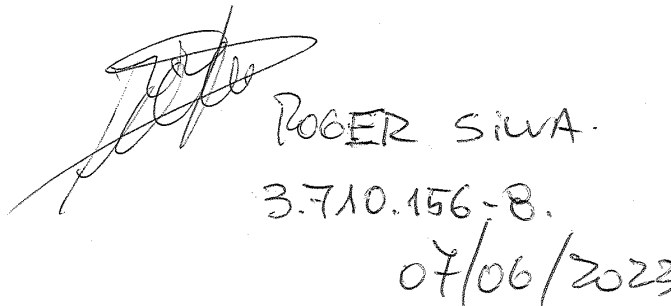 ROGER SILVA.
3.710.156-8.
07/06/2023